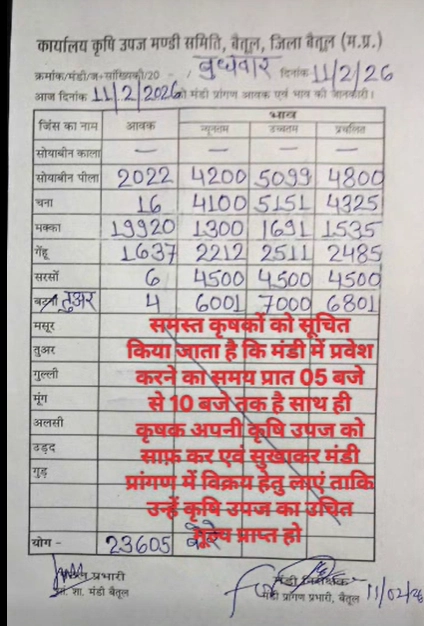 कार्यालय कृषि उपज मण्डी समिति, बैतूल, जिला बैतूल (म.प्र.)
क्रमांक/मंडी/ज+सांख्यिकी/20 - / बुधवार दिनांक 11/2/26
आज दिनांक 11/2/2026 को मंडी प्रांगण आवक एवं भाव की जानकारी।
जिंस का नाम आवक भाव
न्यूनतम उच्चतम प्रचलित
सोयाबीन काला — — — —
सोयाबीन पीला 2022 4200 5099 4800
चना 16 4100 5151 4325
मक्का 19920 1300 1691 1535
गेंहू 1637 2212 2511 2485
सरसों 6 4500 4500 4500
तुअर 4 6001 7000 6801
मसूर
तुअर
गुल्ली
मूंग
अलसी
उड़द
गुड़
समस्त कृषकों को सूचित
किया जाता है कि मंडी में प्रवेश
करने का समय प्रात 05 बजे
से 10 बजे तक है साथ ही
कृषक अपनी कृषि उपज को
साफ़ कर एवं सुखाकर मंडी
प्रांगण में विक्रय हेतु लाएं ताकि
उन्हें कृषि उपज का उचित
मूल्य प्राप्त हो
योग - 23605
प्रभारी
शा. मंडी बैतूल
मंडी निरीक्षक
मंडी प्रांगण प्रभारी, बैतूल 11/02/26